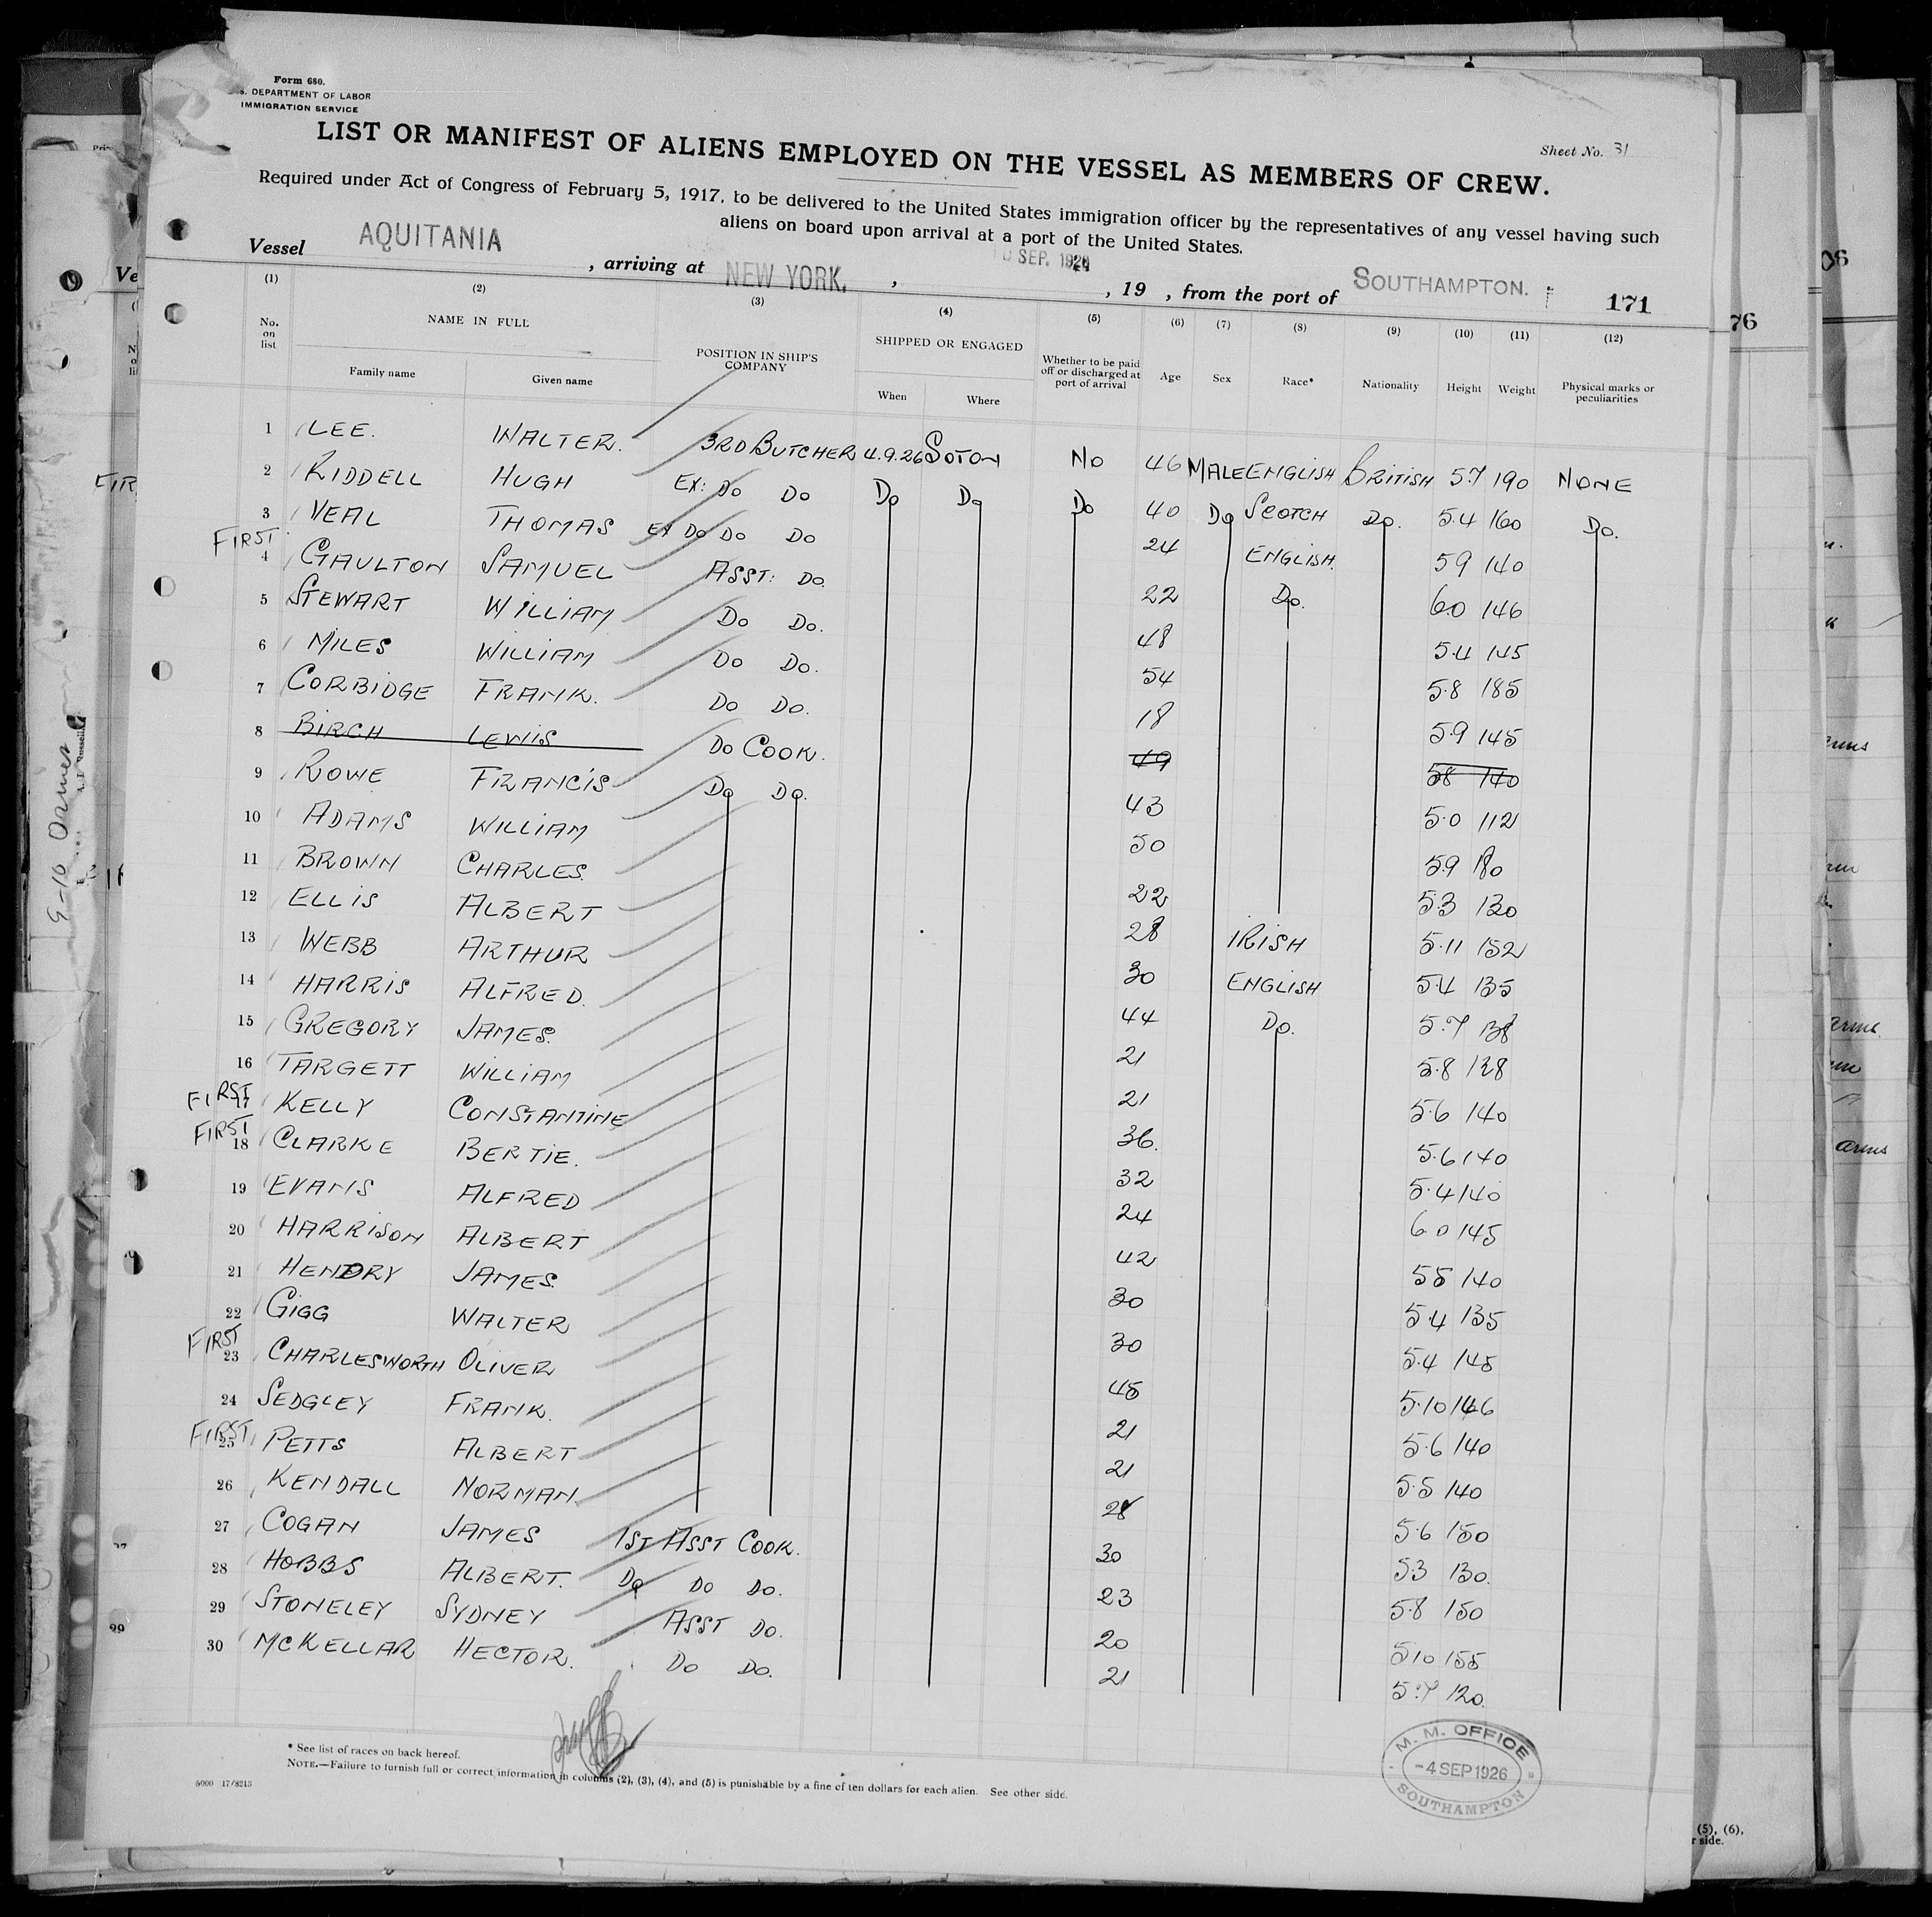 Form 680.
U.S. DEPARTMENT OF LABOR
IMMIGRATION SERVICE
Sheet No. 31
LIST OR MANIFEST OF ALIENS EMPLOYED ON THE VESSEL AS MEMBERS OF CREW.
Required under Act of Congress of February 5, 1917, to be delivered to the United States immigration officer by the representatives of any vessel having such
aliens on board upon arrival at a port of the United States.
Vessel AQUITANIA, arriving at NEW YORK, SEP. 192, 19 , from the port of SOUTHAMPTON. 171
(1) (2) (3) (4) (5) (6) (7) (8) (9) (10) (11) (12)
No. on list NAME IN FULL POSITION IN SHIP'S COMPANY SHIPPED OR ENGAGED Whether to be paid off or discharged at port of arrival Age Sex Race* Nationality Height Weight Physical marks or peculiarities
Family name Given name When Where
1 LEE. WALTER. 3RD BUTCHER 4.9.26 SOTON NO 46 MALE ENGLISH BRITISH 5.7 190 NONE
2 RIDDELL HUGH EX: DO DO DO DO DO 40 DO SCOTCH DO. 5.4 160 DO.
3 VEAL THOMAS EX DO DO DO 24 ENGLISH. 5 9 140
FIRST 4 GAULTON SAMUEL ASST: DO. 22 DO. 6.0 146
5 STEWART WILLIAM DO DO. 48 5.4 145
6 MILES WILLIAM DO DO. 54 5.8 185
7 CORBIDGE FRANK. DO DO. 18 5.9 145
8 BIRCH LEWIS DO COOK. 49 58 140
9 ROWE FRANCIS DO DO. 43 5.0 112
10 ADAMS WILLIAM 50 5.9 180
11 BROWN CHARLES. 22 5.3 130
12 ELLIS ALBERT 28 IRISH 5.11 152
13 WEBB ARTHUR 30 ENGLISH 5.4 135
14 HARRIS ALFRED. 44 DO. 5.7 138
15 GREGORY JAMES. 21 5.8 128
16 TARGETT WILLIAM 21 5.6 140
FIRST 17 KELLY CONSTANTINE 36. 5.6 140
FIRST 18 CLARKE BERTIE. 32 5.4 140
19 EVANS ALFRED 24 6 0 145
20 HARRISON ALBERT 42 5 5 140
21 HENDRY JAMES. 30 5.4 135
22 GIGG WALTER 30 5.4 145
FIRST 23 CHARLESWORTH OLIVER 45 5.10 146
24 SEDGLEY FRANK. 21 5.6 140
FIRST 25 PETTS ALBERT 21 5.5 140
26 KENDALL NORMAN. 28 5.6 150
27 COGAN JAMES 1ST ASST COOK. 30 5.3 130.
28 HOBBS ALBERT. DO DO DO. 23 5.8 150
29 STONELEY SYDNEY ASST DO. 20 5 10 155
30 MCKELLAR HECTOR. DO DO. 21 5.7 120.
* See list of races on back hereof.
NOTE.—Failure to furnish full or correct information in columns (2), (3), (4), and (5) is punishable by a fine of ten dollars for each alien. See other side.
5000 17/8213
M. M. OFFICE
-4 SEP 1926
SOUTHAMPTON
76
(5), (6),
r side.